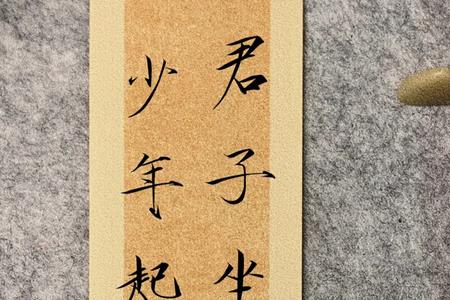 君子坐
少年起